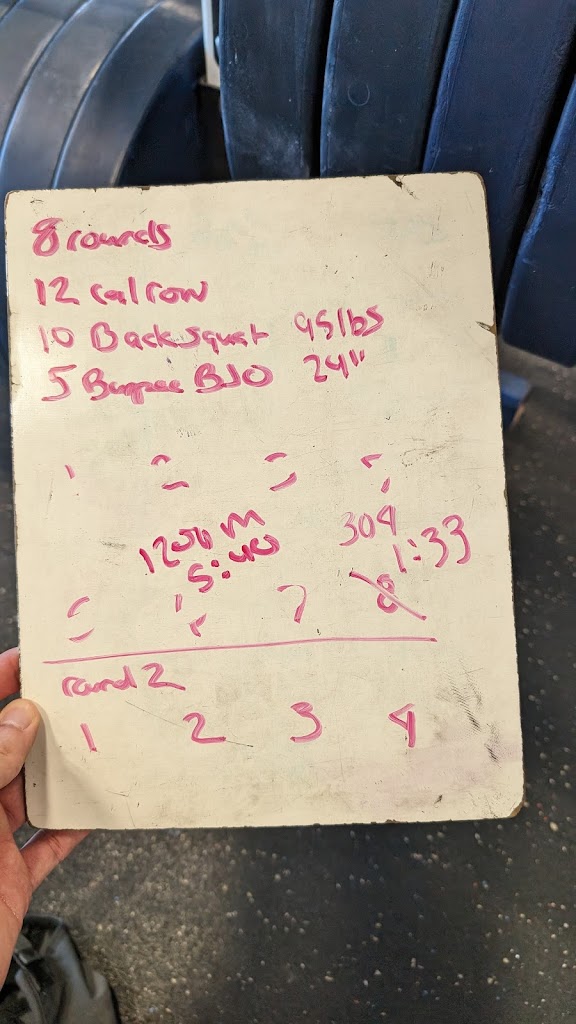 8 rounds
12 cal row
10 Back squat 95lbs
5 Burpee BJO 24"
1200 m 304
5:40 1:33
7 8
round 2
1 2 3 4